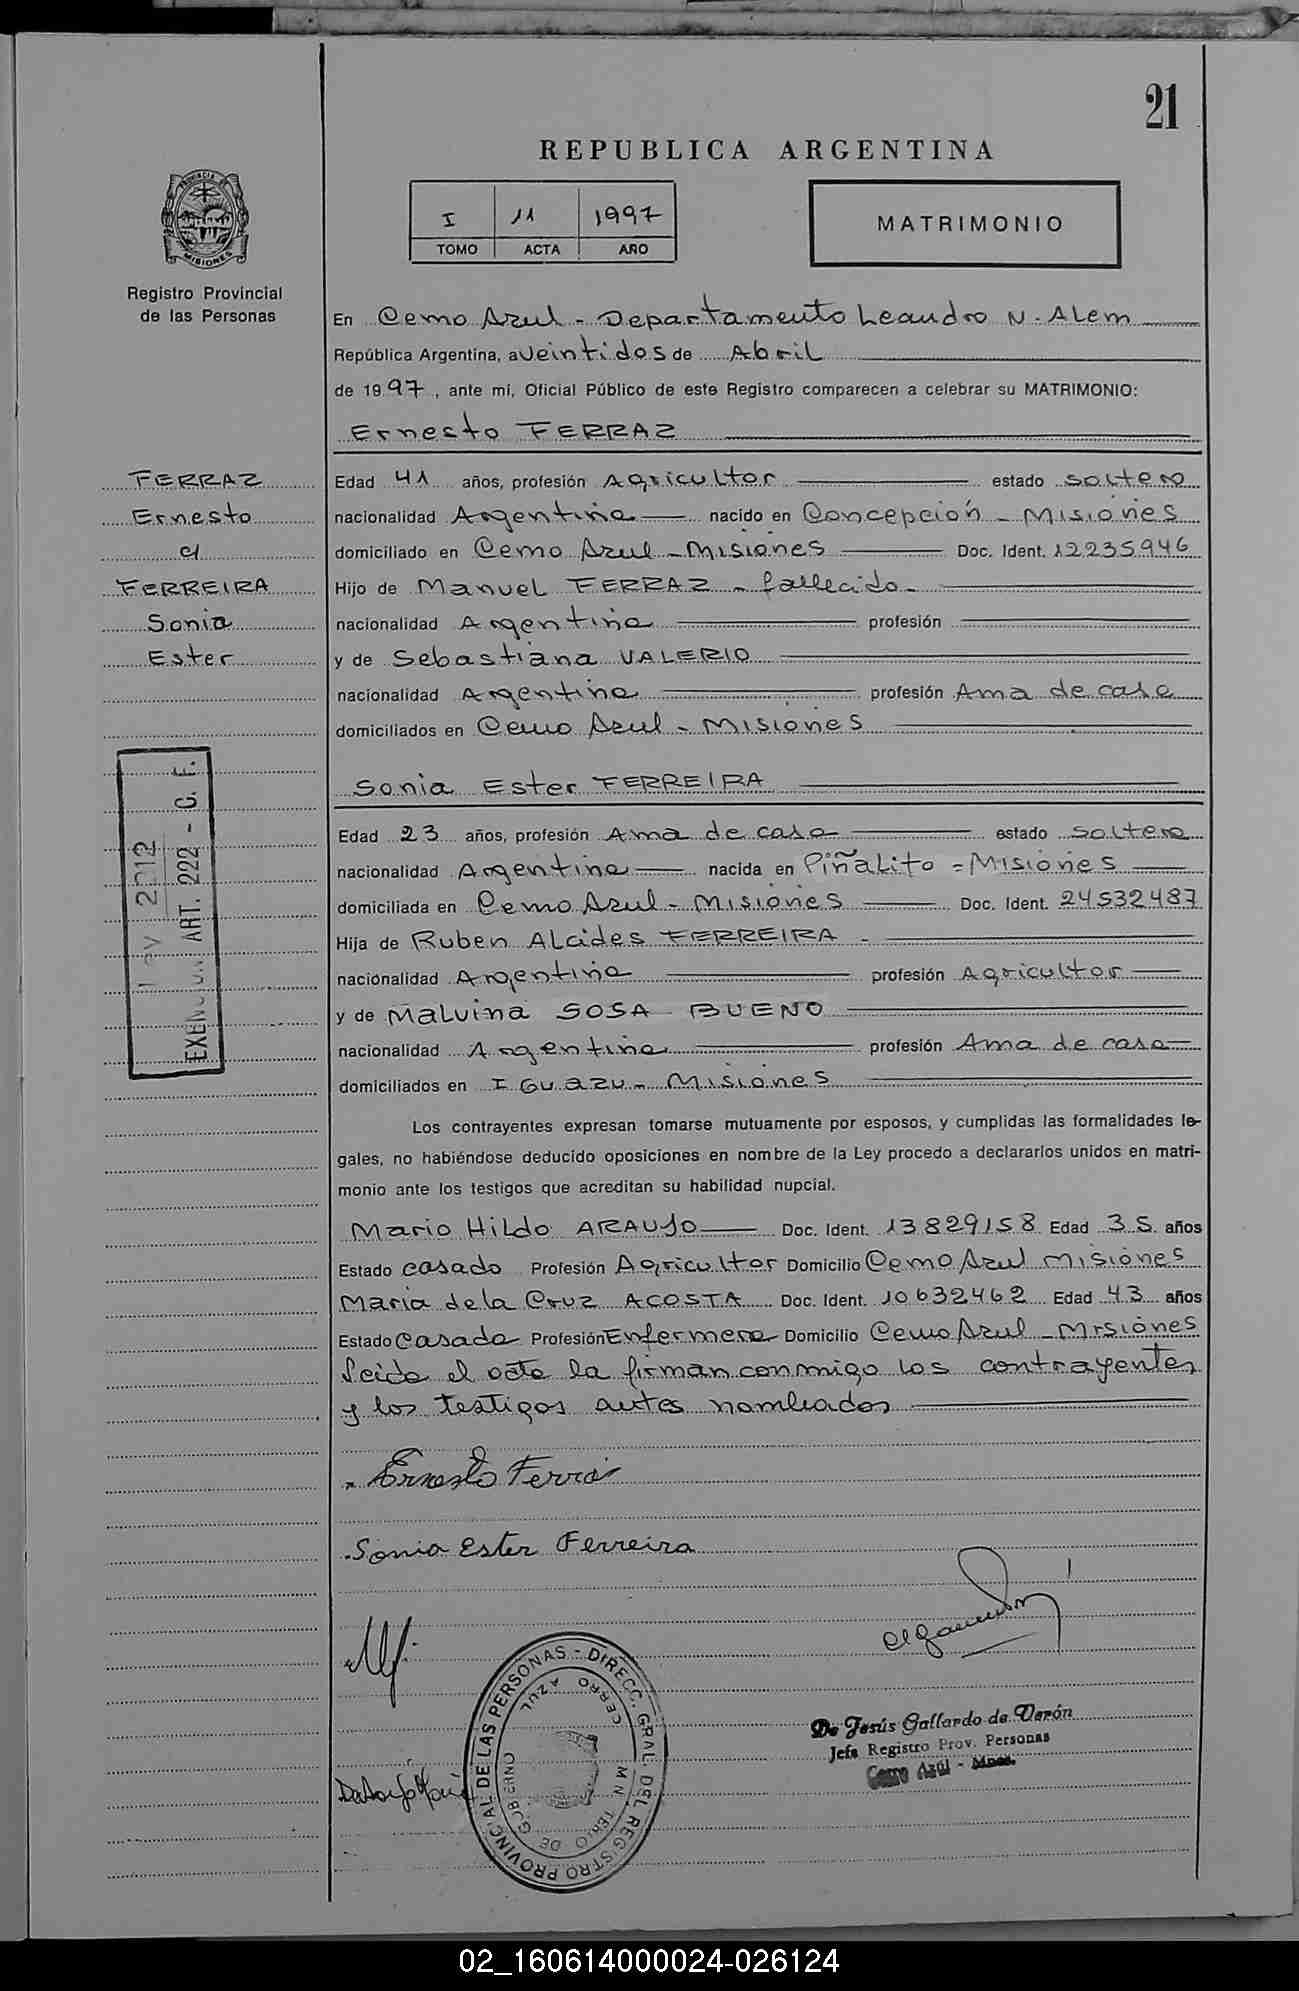 21
REPUBLICA ARGENTINA
I 11 1997
TOMO ACTA AÑO
MATRIMONIO
PROVINCIA DE
MISIONES
Registro Provincial
de las Personas
En Cerro Azul - Departamento Leandro N. Alem
República Argentina, a veintidos de Abril
de 1997, ante mi, Oficial Público de este Registro comparecen a celebrar su MATRIMONIO:
Ernesto FERRAZ
FERRAZ
Ernesto
c/
FERREIRA
Sonia
Ester
Edad 41 años, profesión Agricultor estado soltero
nacionalidad Argentina nacido en Concepción - Misiones
domiciliado en Cerro Azul - Misiones Doc. Ident. 12235946
Hijo de Manuel FERRAZ - fallecido -
nacionalidad Argentina profesión
y de Sebastiana VALERIO
nacionalidad Argentina profesión Ama de casa
domiciliados en Cerro Azul - Misiones
Sonia Ester FERREIRA
Edad 23 años, profesión Ama de casa estado soltera
nacionalidad Argentina nacida en Piñalito - Misiones
domiciliada en Cerro Azul - Misiones Doc. Ident. 24532487
Hija de Ruben Alcides FERREIRA -
nacionalidad Argentina profesión Agricultor
y de Malvina SOSA BUENO
nacionalidad Argentina profesión Ama de casa
domiciliados en Iguazu - Misiones
2012
EXENCION ART. 222 - C. F.
Los contrayentes expresan tomarse mutuamente por esposos, y cumplidas las formalidades le-
gales, no habiéndose deducido oposiciones en nombre de la Ley procedo a declararlos unidos en matri-
monio ante los testigos que acreditan su habilidad nupcial.
Mario Hildo ARAUJO Doc. Ident. 13829158 Edad 35 años
Estado casado Profesión Agricultor Domicilio Cerro Azul Misiones
Maria de la Cruz ACOSTA Doc. Ident. 10632462 Edad 43 años
Estado Casada Profesión Enfermera Domicilio Cerro Azul - Misiones
Leida el acta la firman conmigo los contrayentes
y los testigos antes nombrados
Ernesto Ferras
Sonia Ester Ferreira
DIRECC. GRAL. DEL REGISTRO PROVINCIAL DE LAS PERSONAS -
CERRO AZUL
MINISTERIO DE GOBIERNO
De Jesús Gallardo de Verón
Jefe Registro Prov. Personas
Cerro Azul - Mnes.
02_160614000024-026124